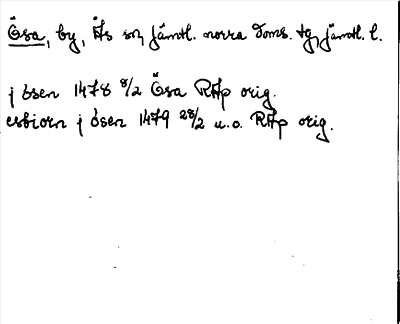 Ösa, by, Ås sn, Jämtl. norra doms. tg, Jämtl. l.
j ösen 1478 8/2 Ösa RAp orig.
esbiorn j ösen 1479 28/2 u.o. RAp orig.